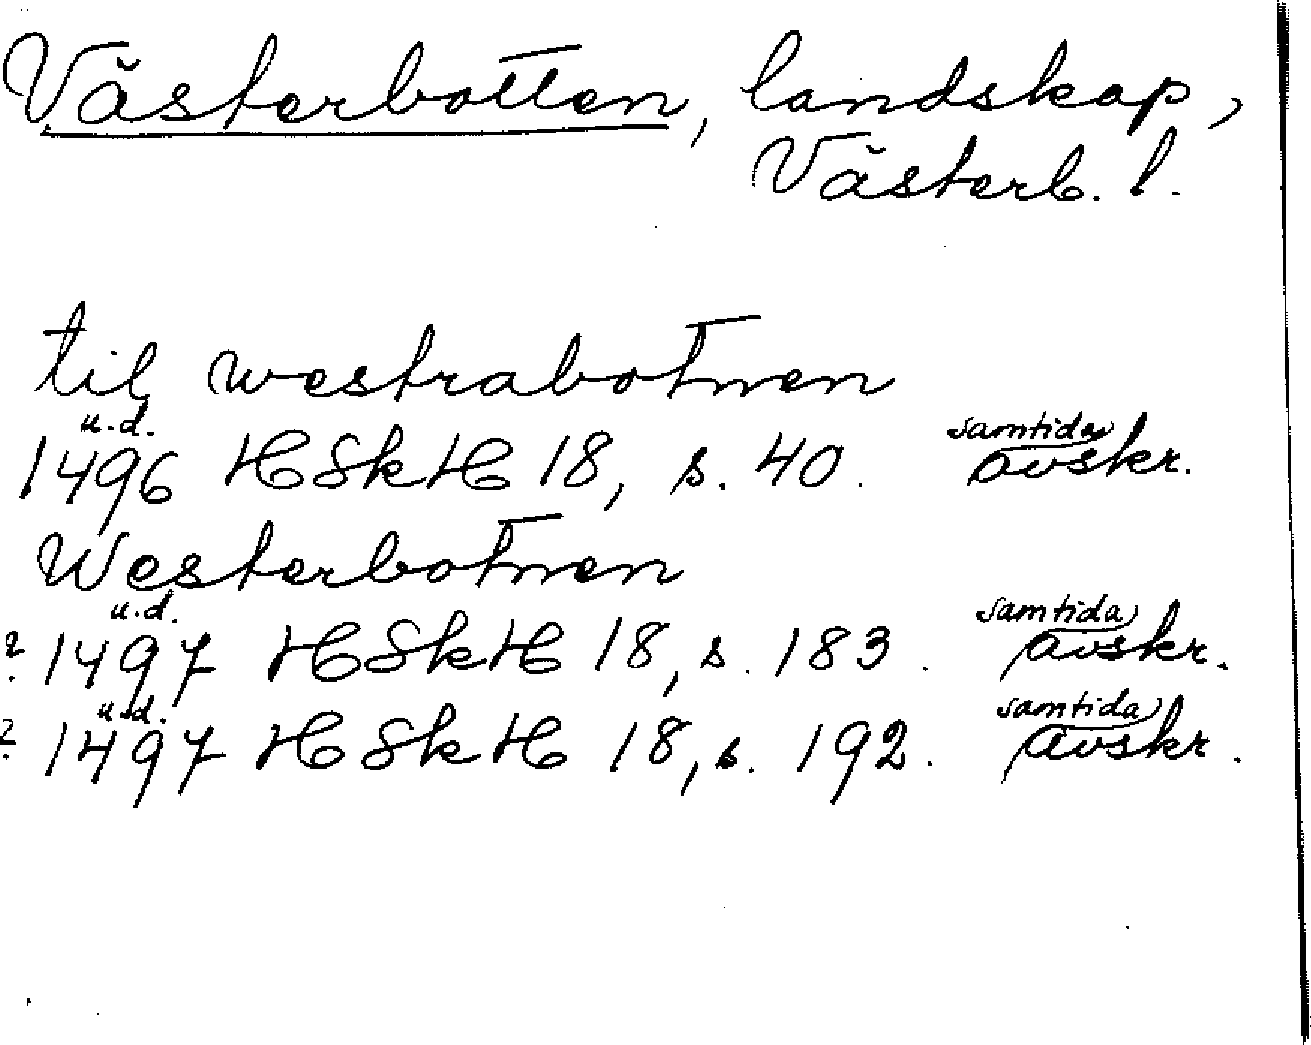 Västerbotten, landskap,
Västerb. l.
til westrabotnen
u.d.
1496 HSkH 18, s. 40. samtida avskr.
Westerbotnen
u.d.
? 1497 HSkH 18, s. 183. samtida avskr.
u.d.
? 1497 HSkH 18, s. 192. samtida avskr.